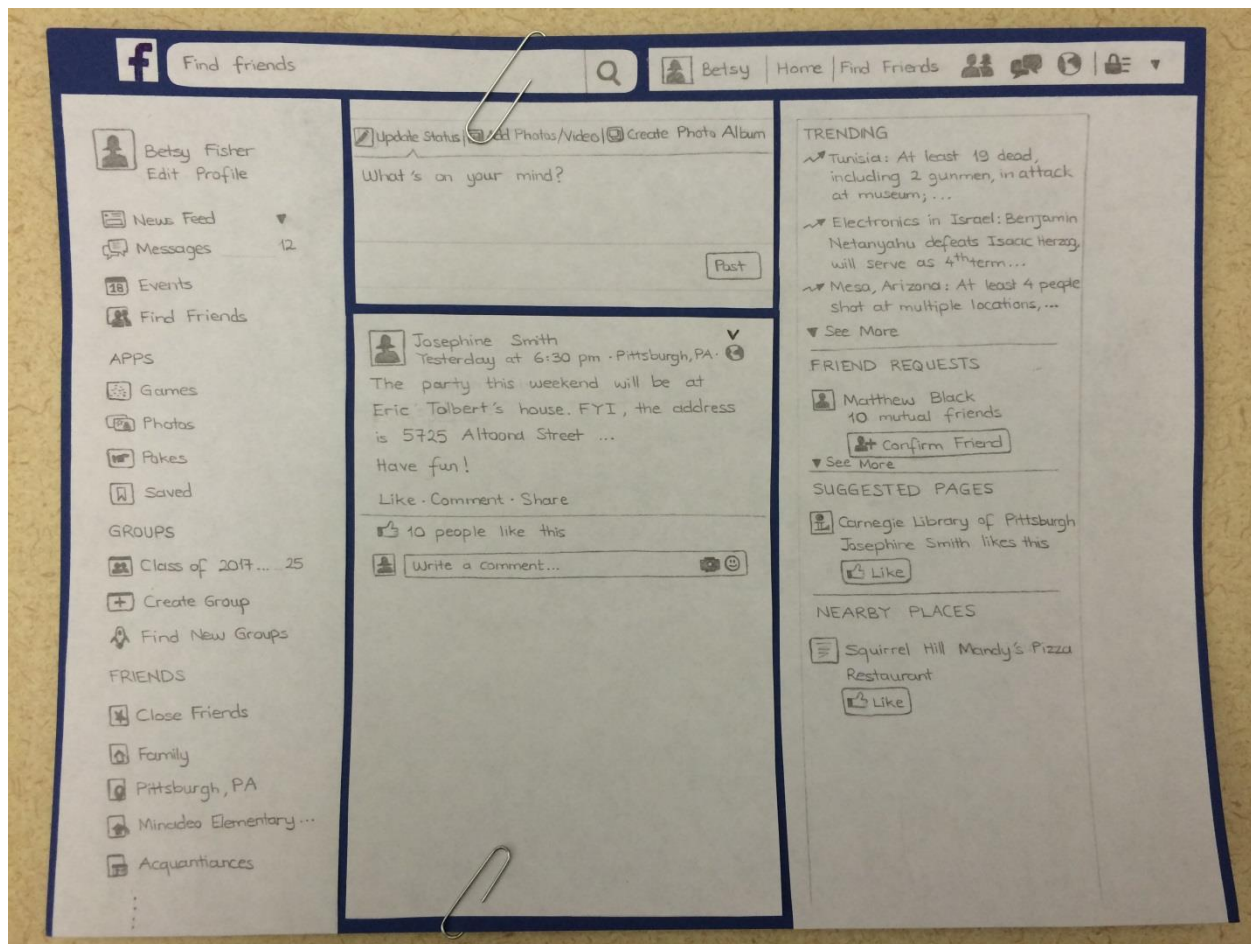 f
Find friends
Betsy | Home | Find Friends
Betsy Fisher
Edit Profile
News Feed
Messages 12
18 Events
Find Friends
APPS
Games
Photos
Pokes
Saved
GROUPS
Class of 2017... 25
Create Group
Find New Groups
FRIENDS
Close Friends
Family
Pittsburgh, PA
Minadeo Elementary...
Acquantiances
Update Status | Add Photos/Video | Create Photo Album
What's on your mind?
Post
Josephine Smith
Yesterday at 6:30 pm · Pittsburgh, PA ·
The party this weekend will be at
Eric Tolbert's house. FYI, the address
is 5725 Altoona Street ...
Have fun!
Like · Comment · Share
10 people like this
Write a comment...
TRENDING
Tunisia: At least 19 dead,
including 2 gunmen, in attack
at museum; ...
Electronics in Israel: Benjamin
Netanyahu defeats Isaac Herzog,
will serve as 4th term...
Mesa, Arizona: At least 4 people
shot at multiple locations,...
See More
FRIEND REQUESTS
Matthew Black
10 mutual friends
Confirm Friend
See More
SUGGESTED PAGES
Carnegie Library of Pittsburgh
Josephine Smith likes this
Like
NEARBY PLACES
Squirrel Hill Mandy's Pizza
Restaurant
Like